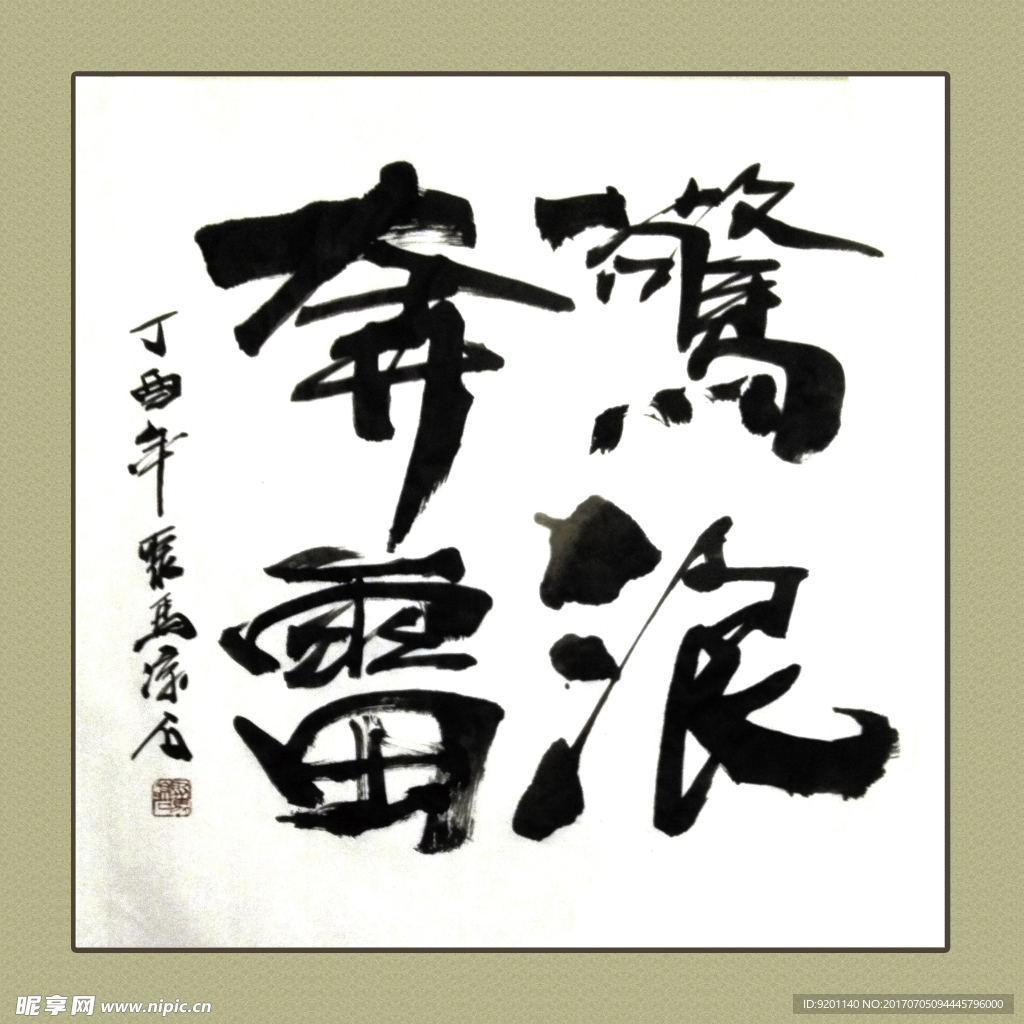 驚浪
奔雷
丁酉年聚馬涼石
昵享网 www.nipic.cn
ID:9201140 NO:20170705094445796000